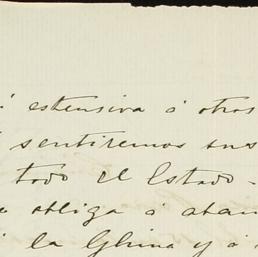 estensiva á otros
sentiremos sus
todo el Estado.
obliga á aban
la Ghina y á